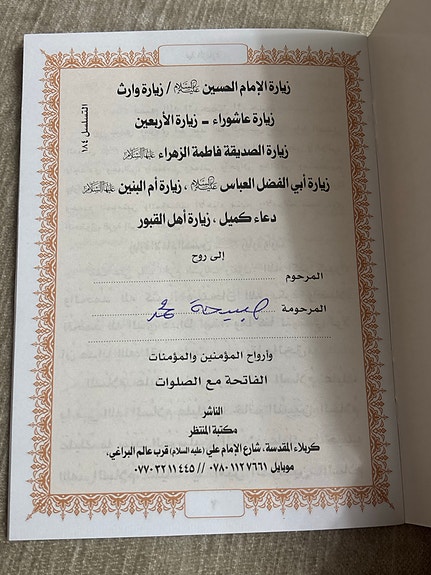 زيارة الإمام الحسين عليه السلام / زيارة وارث
زيارة عاشوراء - زيارة الأربعين
زيارة الصديقة فاطمة الزهراء عليها السلام
زيارة أبي الفضل العباس عليه السلام ، زيارة أم البنين عليها السلام
دعاء كميل ، زيارة أهل القبور
إلى روح
المرحوم
المرحومة صبيحة محمد
وأرواح المؤمنين والمؤمنات
الفاتحة مع الصلوات
الناشر
مكتبة المنتظر
كربلاء المقدسة، شارع الإمام علي (عليه السلام) قرب عالم البراغي،
موبايل ٠٧٨٠١١٢٧٦٦١ // ٠٧٧٠٢٢١١٤٤٥
التسلسل ١٨٤